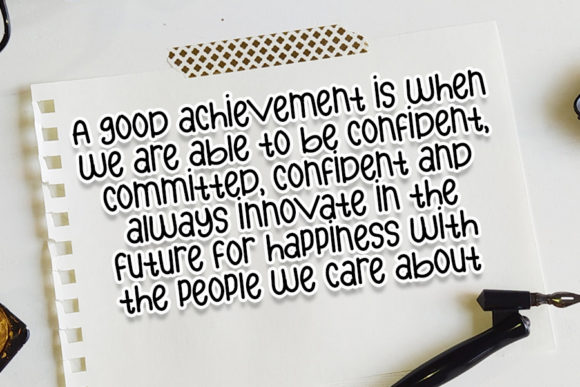 A good achievement is when
we are able to be confident,
committed, confident and
always innovate in the
future for happiness with
the people we care about